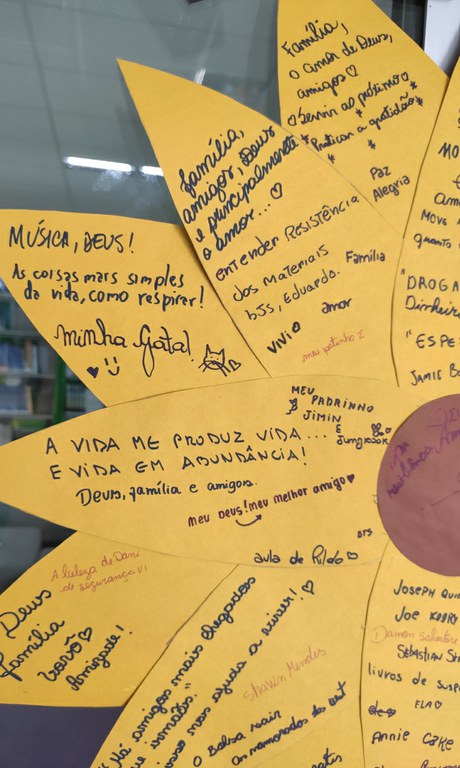 Família,
o amor de Deus,
amigos ♡
♡ Servir ao próximo ♡
Praticar a gratidão
Paz
Alegria
família,
amigos, Deus
e principalmente
o amor... ♡
entender Resistência
dos Materiais
bjs, Eduardo.
Família
amor
VIVI ♡
meu patinho 2
MÚSICA, DEUS!
As coisas mais simples
da vida, como respirar!
minha gata!
MO
am
MOVE
quanto
"DROGA
Dinheir
"ESPE
JAMIE
MEU
PADRINHO
JIMIN
E
Jungkook
A VIDA ME PRODUZ VIDA...
E VIDA EM ABUNDÂNCIA!
Deus, família e amigos.
meu Deus! meu melhor amigo ♥
BTS
aula de
A beleza de Dani
de segurança
Deus
Família
vovô ♡
Amizade!
"Há amigos mais chegados
que irmãos"
nos ajuda a viver! ♡
Shawn Mendes
O Bolsa
os namorados da
JOSEPH QUI
JOE KEERY
Damon Salvatore
SEBASTIAN S
livros de SUSP
FLA ♡
ANNIE CAKE